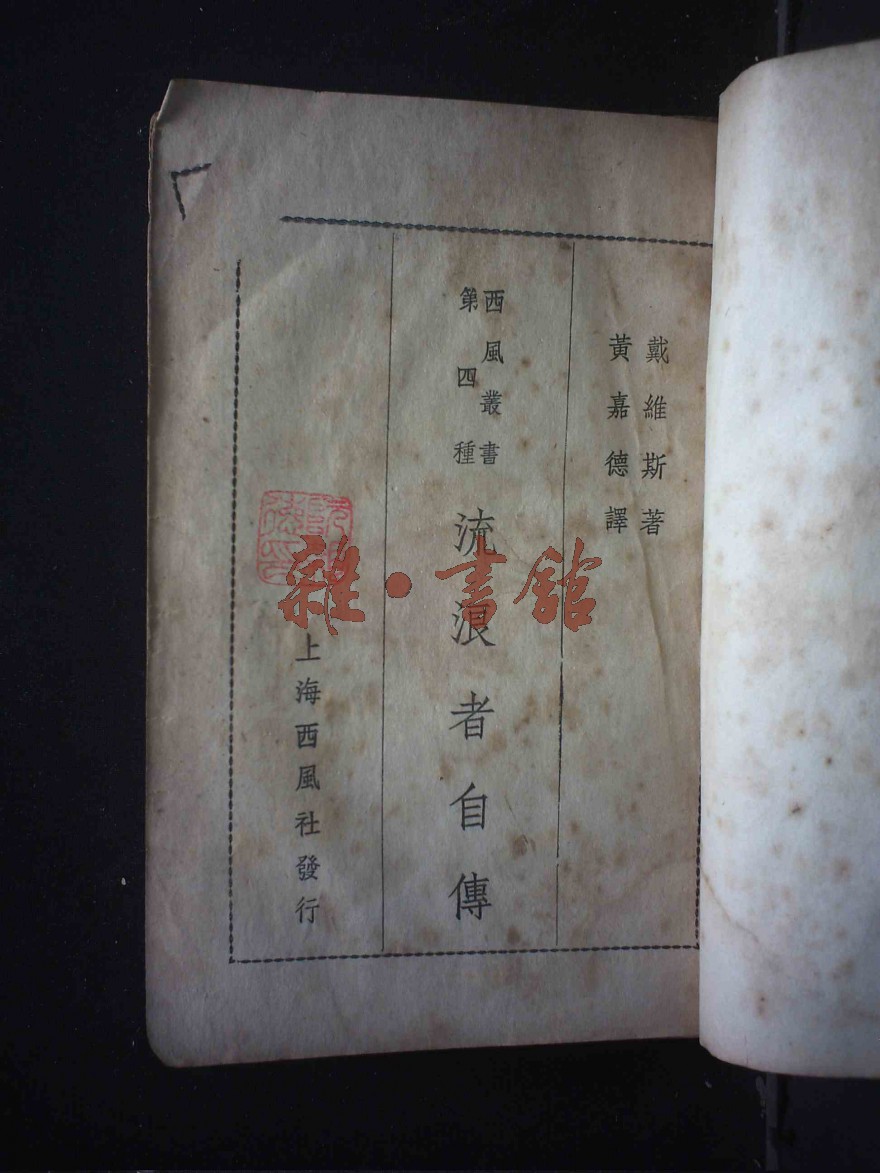 戴維斯著
黃嘉德譯
西風叢書
第四種
流浪者自傳
上海西風社發行
雜·書館